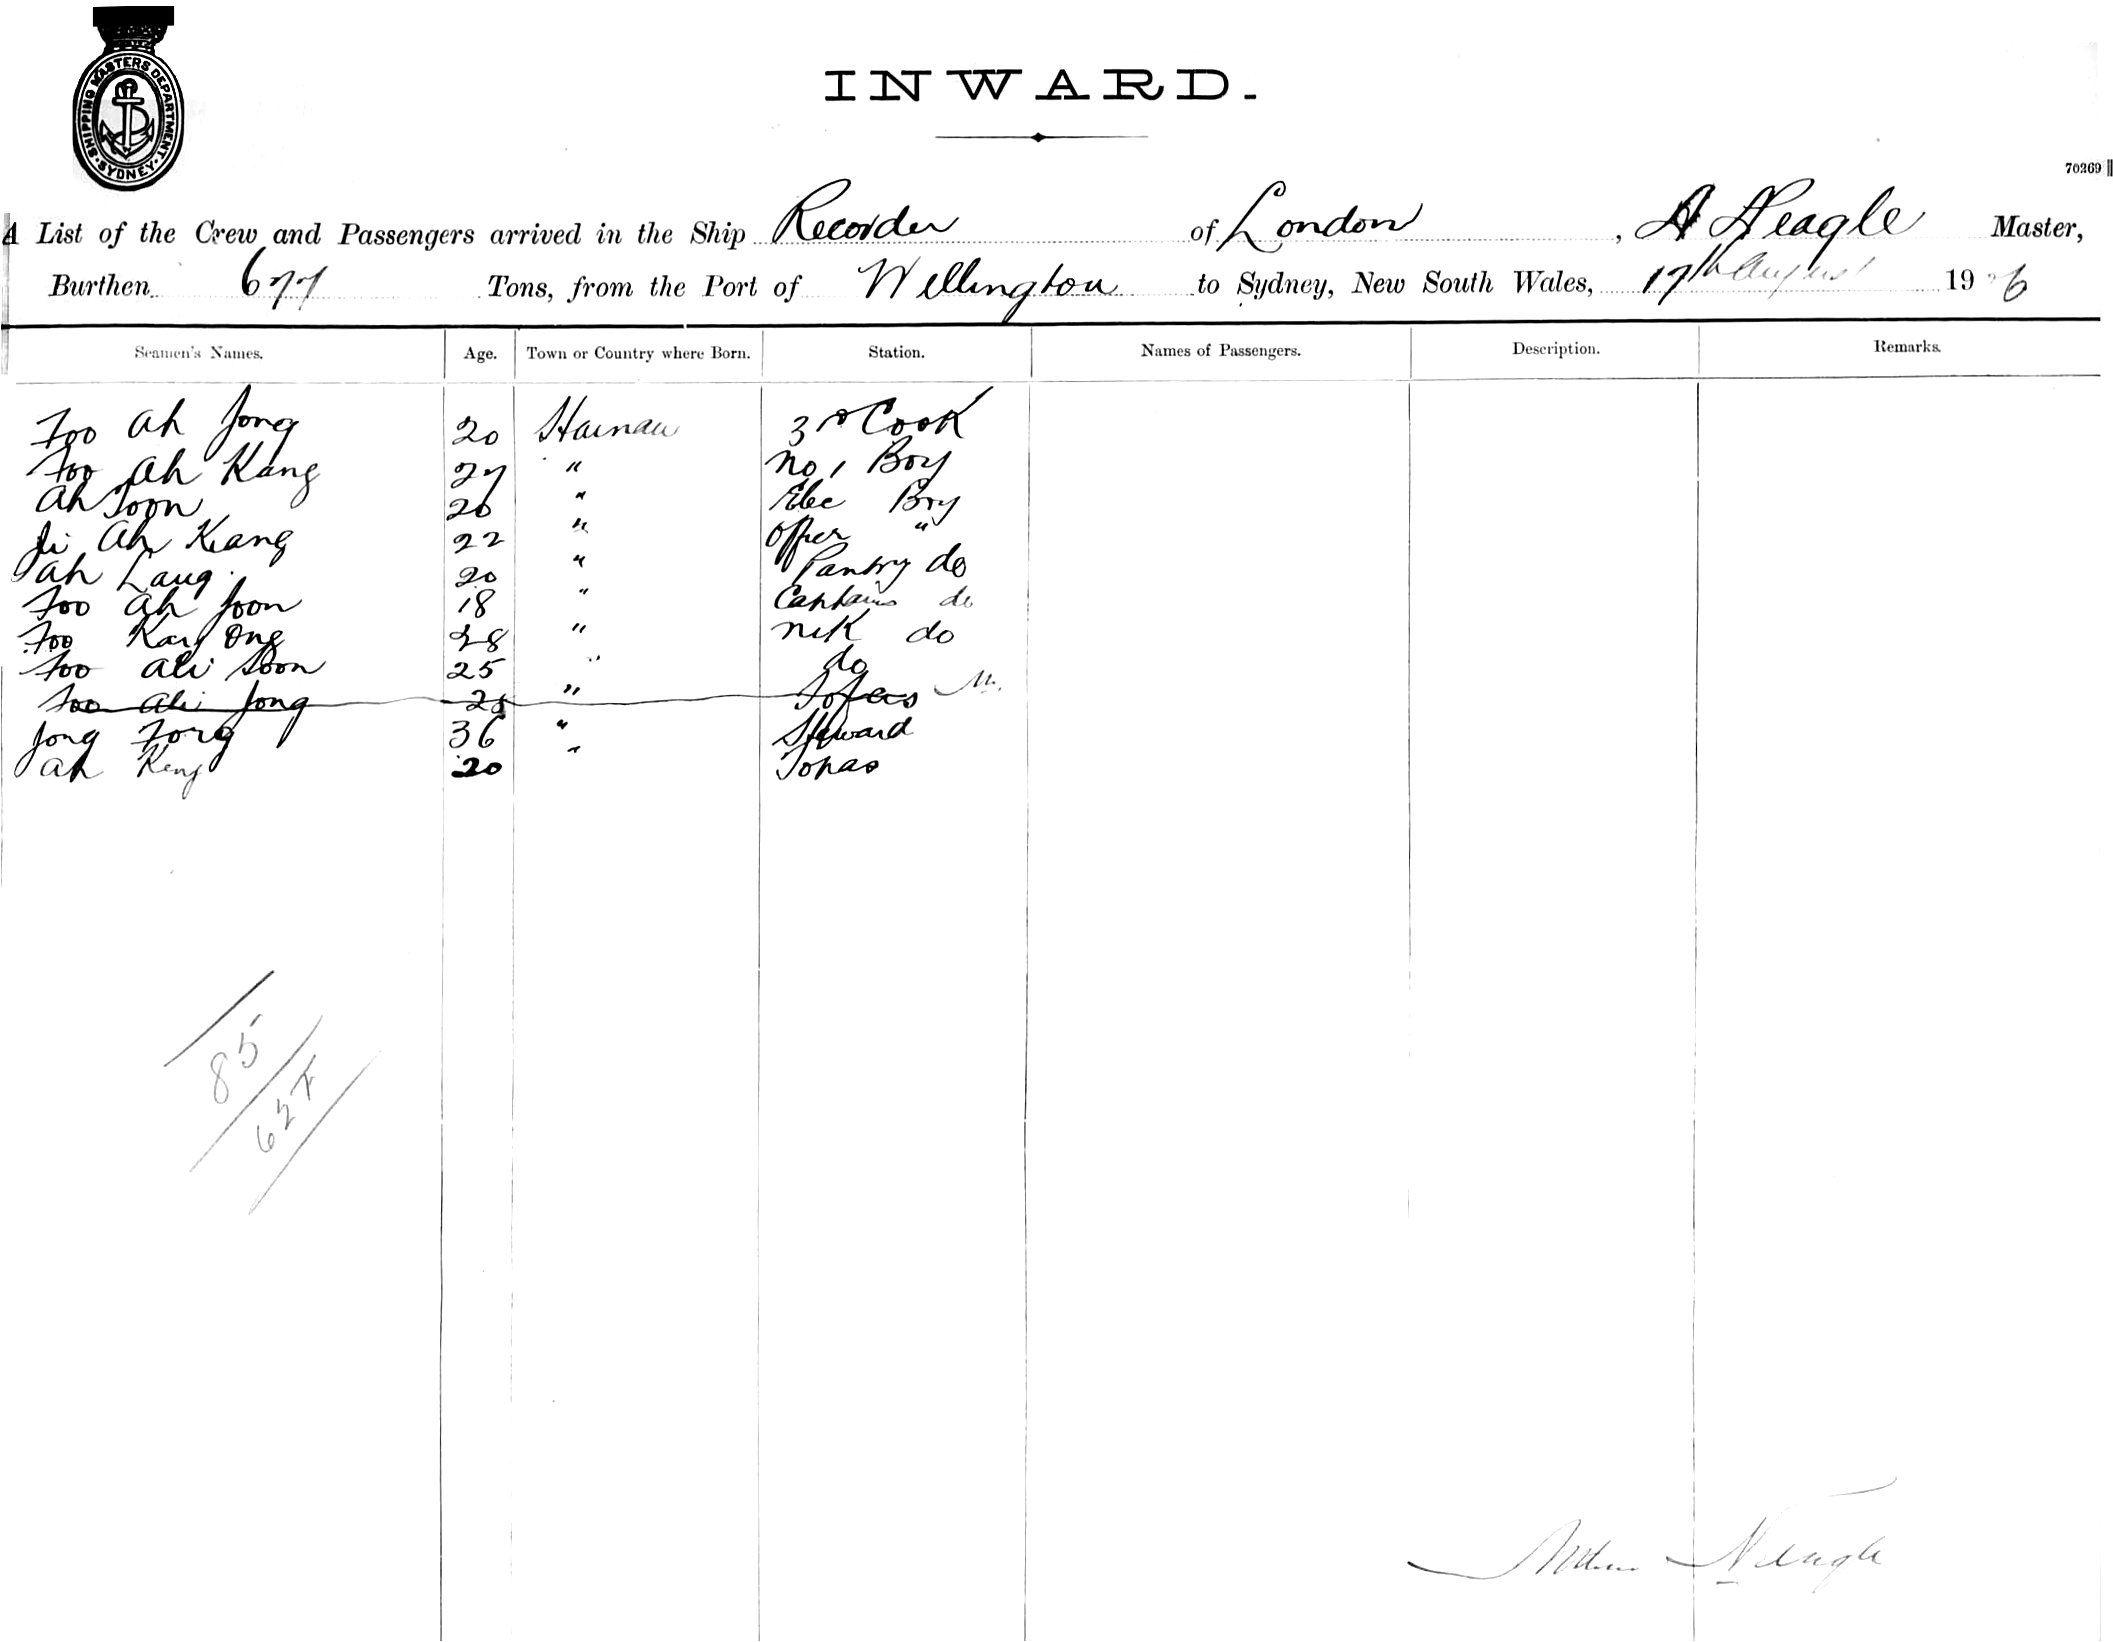 SHIPPING MASTERS DEPARTMENT
SYDNEY
INWARD.
70269
A List of the Crew and Passengers arrived in the Ship Recorder of London, A Neagle Master,
Burthen 677 Tons, from the Port of Wellington to Sydney, New South Wales, 17th August 19 6
Seamen's Names. Age. Town or Country where Born. Station. Names of Passengers. Description. Remarks.
Foo Ah Jong 20 Hainau 3rd Cook
Foo Ah Kang 27 " No 1 Boy
Ah Soon 20 " Elec Boy
Ji Ah Kiang 22 " Offier "
Ah Lang 20 " Pantry do
Foo Ah Joon 18 " Captains do
Foo Kay Ong 28 " do
Foo Ali Soon 25 " do
Foo Ali Jong 28 " Topas
Jong Fong 36 " Steward
Ah Keng 20 " Topas
85
627
Neagle